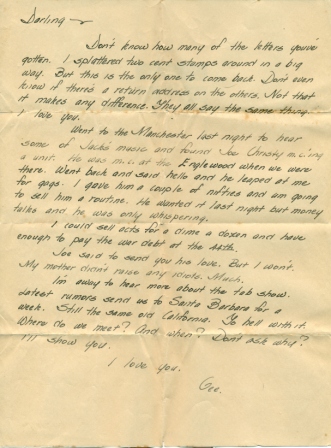 Darling —
Don't know how many of the letters you've
gotten. I splattered two cent stamps around in a big
way. But this is the only one to come back. Don't even
know if there's a return address on the others. Not that
it makes any difference. They all say the same thing.
I love you.
Went to the Manchester last night to hear
some of Jack's music and found Joe Christy m.c.ing
a unit. He was m.c. at the Englewood when we were
there. Went back and said hello and he leaped at me
for gags. I gave him a couple of nifties and am going
to sell him a routine. He wanted it last night but money
talks and he was only whispering.
I could sell acts for a dime a dozen and have
enough to pay the war debt at the
Joe said to send you his love. But I won't.
My mother didn't raise any idiots. Much.
I'm away to hear more about the tab show.
Latest rumors send us to Santa Barbara for a
week. Still the same old California. To hell with it.
Where do we meet? And when? Don't ask why?
I'll show you.
I love you.